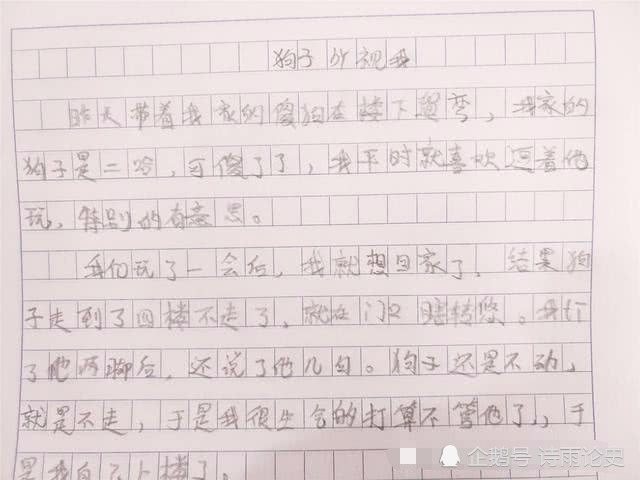 狗子鄙视我
昨天带着我家的傻狗在楼下遛弯，我家的
狗子是二哈，可傻了了，我平时就喜欢逗着他
玩，特别的有意思。
我们玩了一会后，我就想回家了，结果狗
子走到了四楼不走了，就在门口瞎转悠。我打
了他两脚后，还说了他几句。狗子还是不动，
就是不走，于是我很生气的打算不管他了，于
是我自己上楼了。
企鹅号 诗雨论史